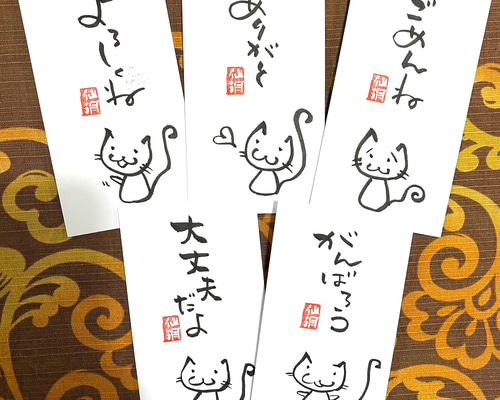 よろしくね
仙洞
ありがと
仙洞
ごめんね
仙洞
大丈夫
だよ
仙洞
がんばろう
仙洞